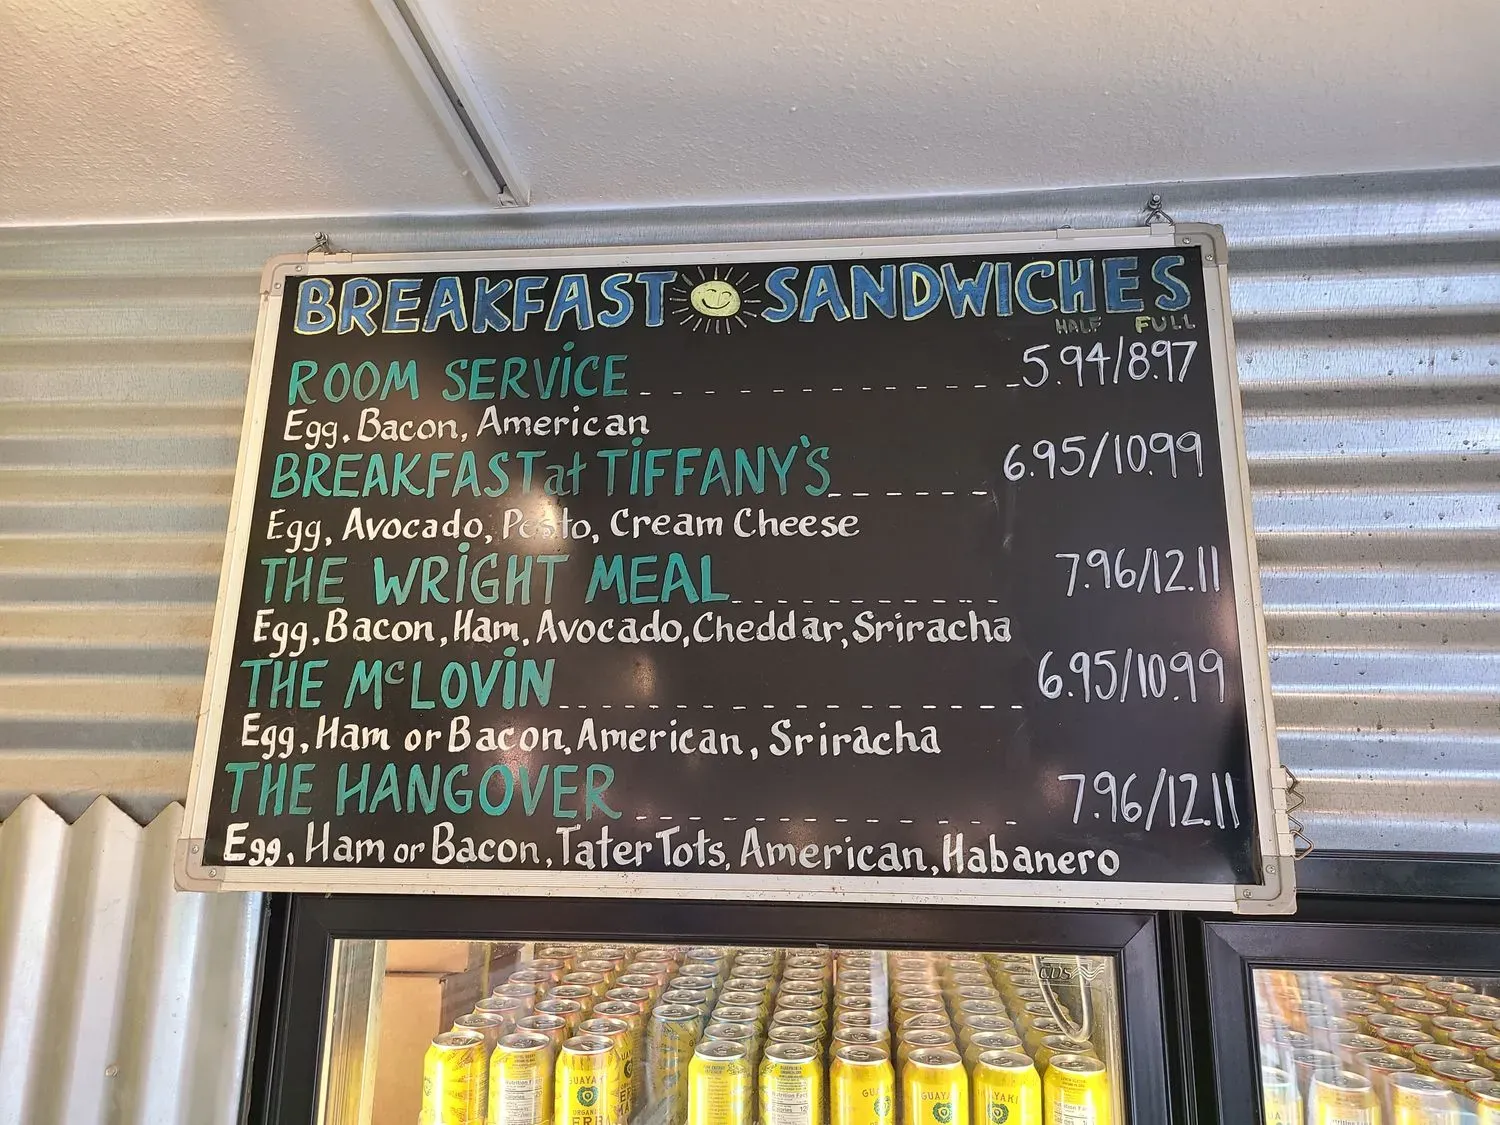 BREAKFAST SANDWICHES
HALF FULL
ROOM SERVICE 5.94/8.97
Egg, Bacon, American
BREAKFAST at TIFFANY'S 6.95/10.99
Egg, Avocado, Pesto, Cream Cheese
THE WRIGHT MEAL 7.96/12.11
Egg, Bacon, Ham, Avocado, Cheddar, Sriracha
THE McLOVIN 6.95/10.99
Egg, Ham or Bacon, American, Sriracha
THE HANGOVER 7.96/12.11
Egg, Ham or Bacon, Tater Tots, American, Habanero
GUAYAKI
GUAYAKI